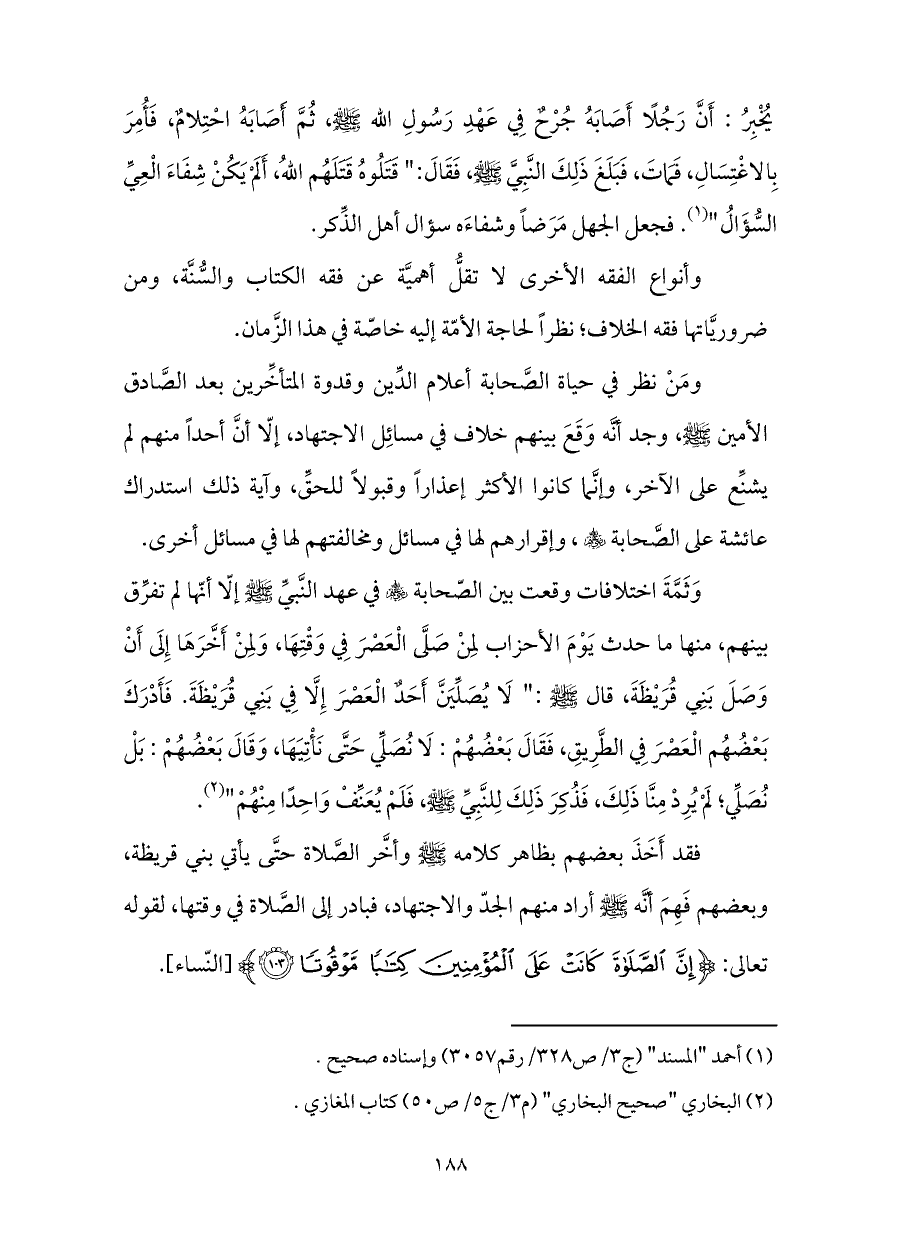 يُخْبِرُ : أَنَّ رَجُلًا أَصَابَهُ جُرْحٌ فِي عَهْدِ رَسُولِ الله ﷺ، ثُمَّ أَصَابَهُ احْتِلامٌ، فَأُمِرَ
بِالاغْتِسَالِ، فَمَاتَ، فَبَلَغَ ذَلِكَ النَّبِيَّ ﷺ، فَقَالَ:" قَتَلُوهُ قَتَلَهُم اللهُ، أَلَمْ يَكُنْ شِفَاءَ الْعِيِّ
السُّؤَالُ"(١). فجعل الجهل مَرَضاً وشفاءَه سؤال أهل الذِّكر.
وأنواع الفقه الأخرى لا تقلُّ أهميَّة عن فقه الكتاب والسُّنَّة، ومن
ضروريَّاتها فقه الخلاف؛ نظراً لحاجة الأمّة إليه خاصّة في هذا الزَّمان.
ومَنْ نظر في حياة الصَّحابة أعلام الدِّين وقدوة المتأخِّرين بعد الصَّادق
الأمين ﷺ، وجد أنَّه وَقَعَ بينهم خلاف في مسائِل الاجتهاد، إلّا أنَّ أحداً منهم لم
يشنِّع على الآخر، وإنَّما كانوا الأكثر إعذاراً وقبولاً للحقِّ، وآية ذلك استدراك
عائشة على الصَّحابة ﷺ ، وإقرارهم لها في مسائل ومخالفتهم لها في مسائل أخرى.
وَثَمَّةَ اختلافات وقعت بين الصّحابة ﷺ في عهد النَّبيِّ ﷺ إلّا أنّها لم تفرِّق
بينهم، منها ما حدث يَوْمَ الأحزاب لِمنْ صَلَّى الْعَصْرَ فِي وَقْتِهَا، وَلِمنْ أَخَّرَهَا إِلَى أَنْ
وَصَلَ بَنِي قُرَيْظَةَ، قال ﷺ :" لَا يُصَلِّيَنَّ أَحَدٌ الْعَصْرَ إِلَّا فِي بَنِي قُرَيْظَةَ. فَأَدْرَكَ
بَعْضُهُم الْعَصْرَ فِي الطَّرِيقِ، فَقَالَ بَعْضُهُمْ : لَا نُصَلِّي حَتَّى نَأْتِيَهَا، وَقَالَ بَعْضُهُمْ : بَلْ
نُصَلِّي؛ لَمْ يُرِدْ مِنَّا ذَلِكَ، فَذُكِرَ ذَلِكَ لِلنَّبِيِّ ﷺ، فَلَمْ يُعَنِّفْ وَاحِدًا مِنْهُمْ"(٢).
فقد أَخَذَ بعضهم بظاهر كلامه ﷺ وأخَّر الصَّلاة حتَّى يأتي بني قريظة،
وبعضهم فَهِمَ أنَّه ﷺ أراد منهم الجدّ والاجتهاد، فبادر إلى الصَّلاة في وقتها، لقوله
تعالى: ﴿إِنَّ ٱلصَّلَوٰةَ كَانَتْ عَلَى ٱلْمُؤْمِنِينَ كِتَٰبًا مَّوْقُوتًا ١٠٣﴾ [النّساء].
(١) أحمد "المسند" (ج٣/ ص٣٢٨/ رقم٣٠٥٧) وإسناده صحيح .
(٢) البخاري "صحيح البخاري" (م٣/ ج٥/ ص٥٠) كتاب المغازي .
١٨٨